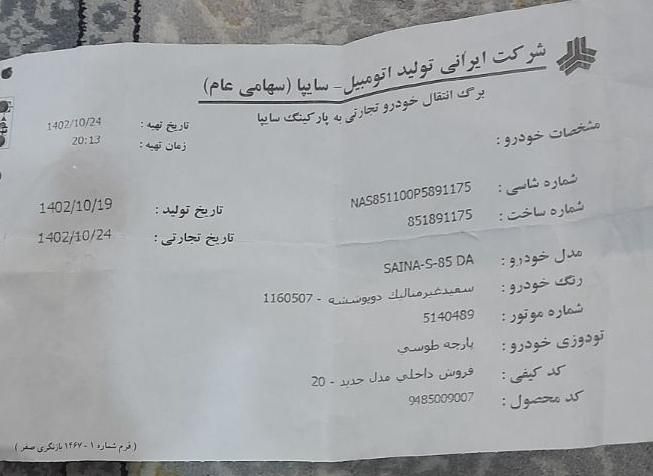 شرکت ایرانی تولید اتومبیل- سایپا (سهامی عام)
برگ انتقال خودرو تجارتی به پارکینگ سایپا
تاریخ تهیه : 1402/10/24
زمان تهیه : 20:13
مشخصات خودرو :
شماره شاسی : NAS851100P5891175
شماره ساخت : 851891175
تاریخ تولید : 1402/10/19
تاریخ تجارتی : 1402/10/24
مدل خودرو : SAINA-S-85 DA
رنگ خودرو : سفیدغیرمتالیك دوپوششه - 1160507
شماره موتور : 5140489
تودوزی خودرو : پارچه طوسي
کد کیفی : فروش داخلي مدل جدید - 20
کد محصول : 9485009007
( فرم شماره ۱ - ۱۴۶۷ بازنگری صفر )